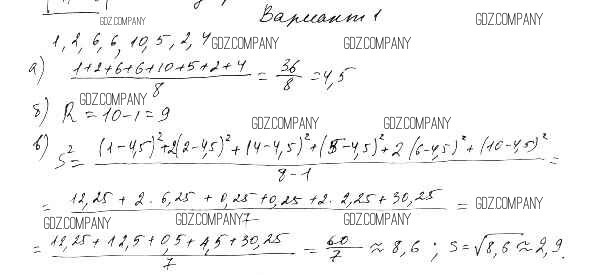 Вариант 1
GDZ.COMPANY
1, 2, 6, 6, 10, 5, 2, 4 GDZ.COMPANY GDZ.COMPANY
а) (1+2+6+6+10+5+2+4)/8 = 36/8 = 4,5 GDZ.COMPANY
GDZ.COMPANY
б) R = 10-1 = 9
GDZ.COMPANY GDZ.COMPANY
в) S² = ((1-4,5)²+2(2-4,5)²+(4-4,5)²+(5-4,5)²+2(6-4,5)²+(10-4,5)²)/(8-1) =
= (12,25 + 2·6,25 + 0,25 + 0,25 + 2·2,25 + 30,25)/7 = GDZ.COMPANY
GDZ.COMPANY GDZ.COMPANY GDZ.COMPANY
= (12,25 + 12,5 + 0,5 + 4,5 + 30,25)/7 = 60/7 ≈ 8,6 ; S = √8,6 ≈ 2,9.
GDZ.COMPANY GDZ.COMPANY GDZ.COMPANY